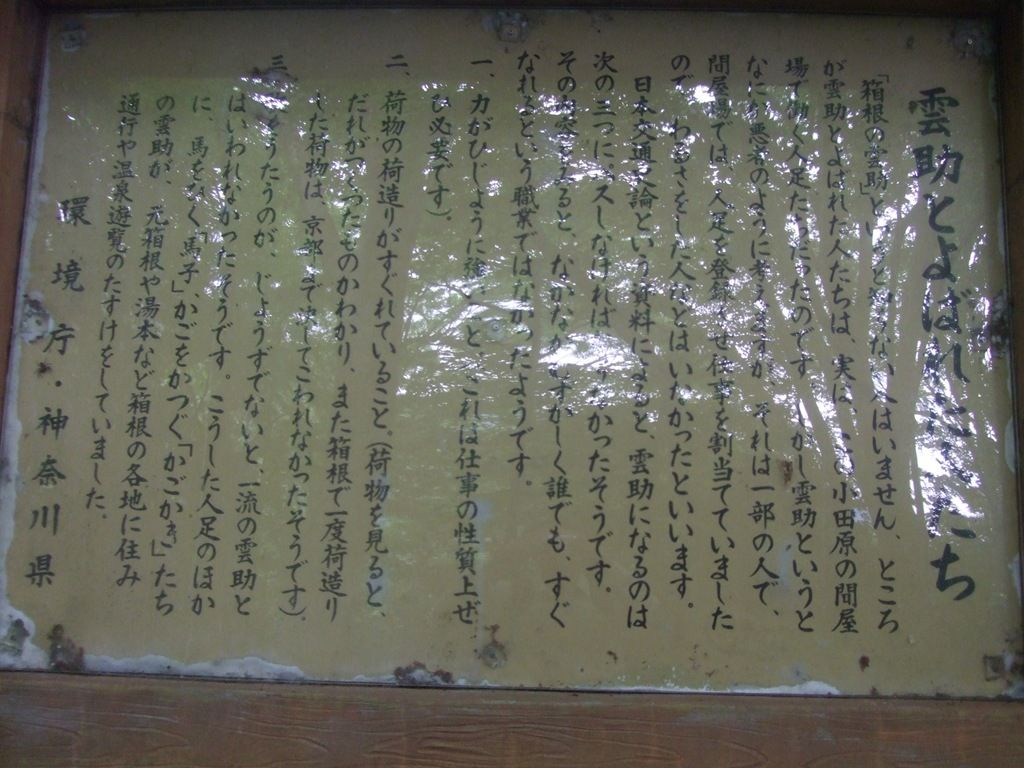 雲助とよばれた人たち
「箱根の雲助」というと知らない人はいません、ところ
が雲助とよばれた人たちは、実は、この小田原の問屋
場で働く人足たちだったのです しかし雲助というと
なにか悪者のように考えますが、それは一部の人で、
問屋場では、人足を登録させ仕事を割当てていました
ので、わるさをした人などはいなかったといいます。
日本交通史論という資料によると、雲助になるのは
次の三つにパスしなければいけなかったそうです。
その内容をみると、なかなかむずかしく誰でも、すぐ
なれるという職業ではなかったようです。
一、力がひじように強いこと、これは仕事の性質上ぜ
ひ必要です）。
二、荷物の荷造りがすぐれていること。（荷物を見ると、
だれがつくったものかわかり、また箱根で一度荷造り
した荷物は、京都まで決してこわれなかったそうです）。
三、うたうのが、じょうずでないと、一流の雲助と
はいわれなかったそうです。 こうした人足のほか
に、馬をひく「馬子」、かごをかつぐ「かごかき」たち
の雲助が、元箱根や湯本など箱根の各地に住み
通行や温泉遊覧のたすけをしていました。
環境庁・神奈川県